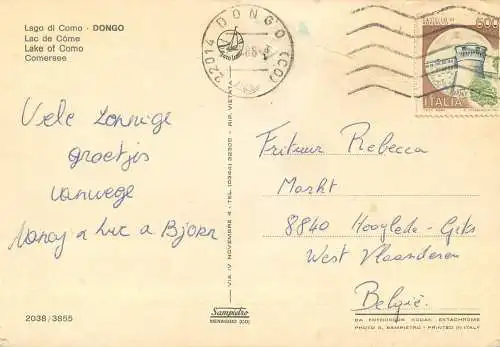 Lago di Como - DONGO
Lac de Côme
Lake of Como
Comersee
22014 DONGO (CO)
600
ITALIA
Vele Zonnige
groetjes
vanwege
Nancy a Luc a Bjorn
Frituur Rebecca
Markt
8840 Hooglede-Gits
West Vlaanderen
België
VIA IV NOVEMBRE 4 - TEL. (0344) 32305 - RIP. VIETATA
Sampietro
MENAGGIO (CO)
2038/3855
DA FOTOCOLOR KODAK EKTACHROME
PHOTO S. SAMPIETRO - PRINTED IN ITALY